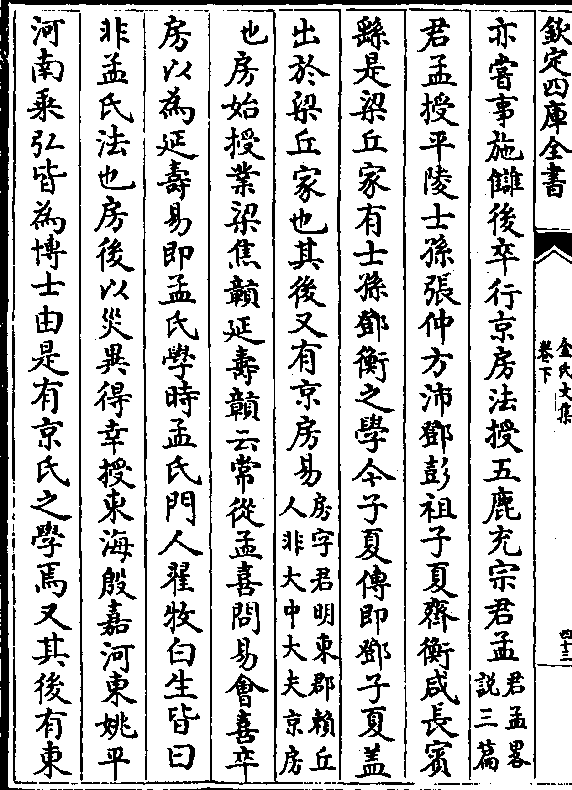 欽定四庫全書
金氏文集
卷下
四十三
亦嘗事施讎後卒行京房法授五鹿充宗君孟君孟畧說三篇
君孟授平陵士孫張仲方沛鄧彭祖子夏齊衡咸長賓
繇是梁丘家有士孫鄧衡之學今子夏傳即鄧子夏盖
出於梁丘家也其後又有京房易房字君明東郡頓丘人非大中大夫京房
也房始授業梁焦贛延壽贛云常從孟喜問易會喜卒
房以為延壽易即孟氏學時孟氏門人翟牧白生皆曰
非孟氏法也房後以災異得幸授東海殷嘉河東姚平
河南乘弘皆為博士由是有京氏之學焉又其後有東